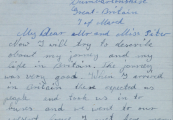 Great Britain
7rd March
My Dear Mr and Miss
Now I will try to describe
about my journey and my
life in Britain. The journey
was very good. When I arrived
in Britain there expected us
people and took us in to
buses and we went to our